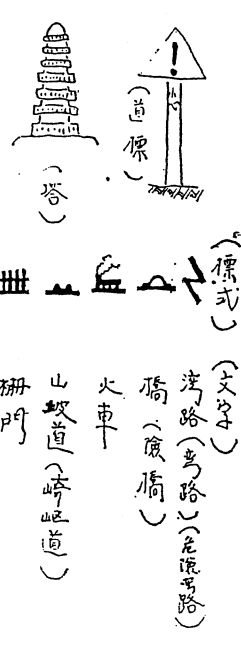 ！
小心
（道標）
（塔）
（標式）
（文字）
灣路（弯路）（危險弯路）
橋（險橋）
火車
山坡道（崎岖道）
柵門